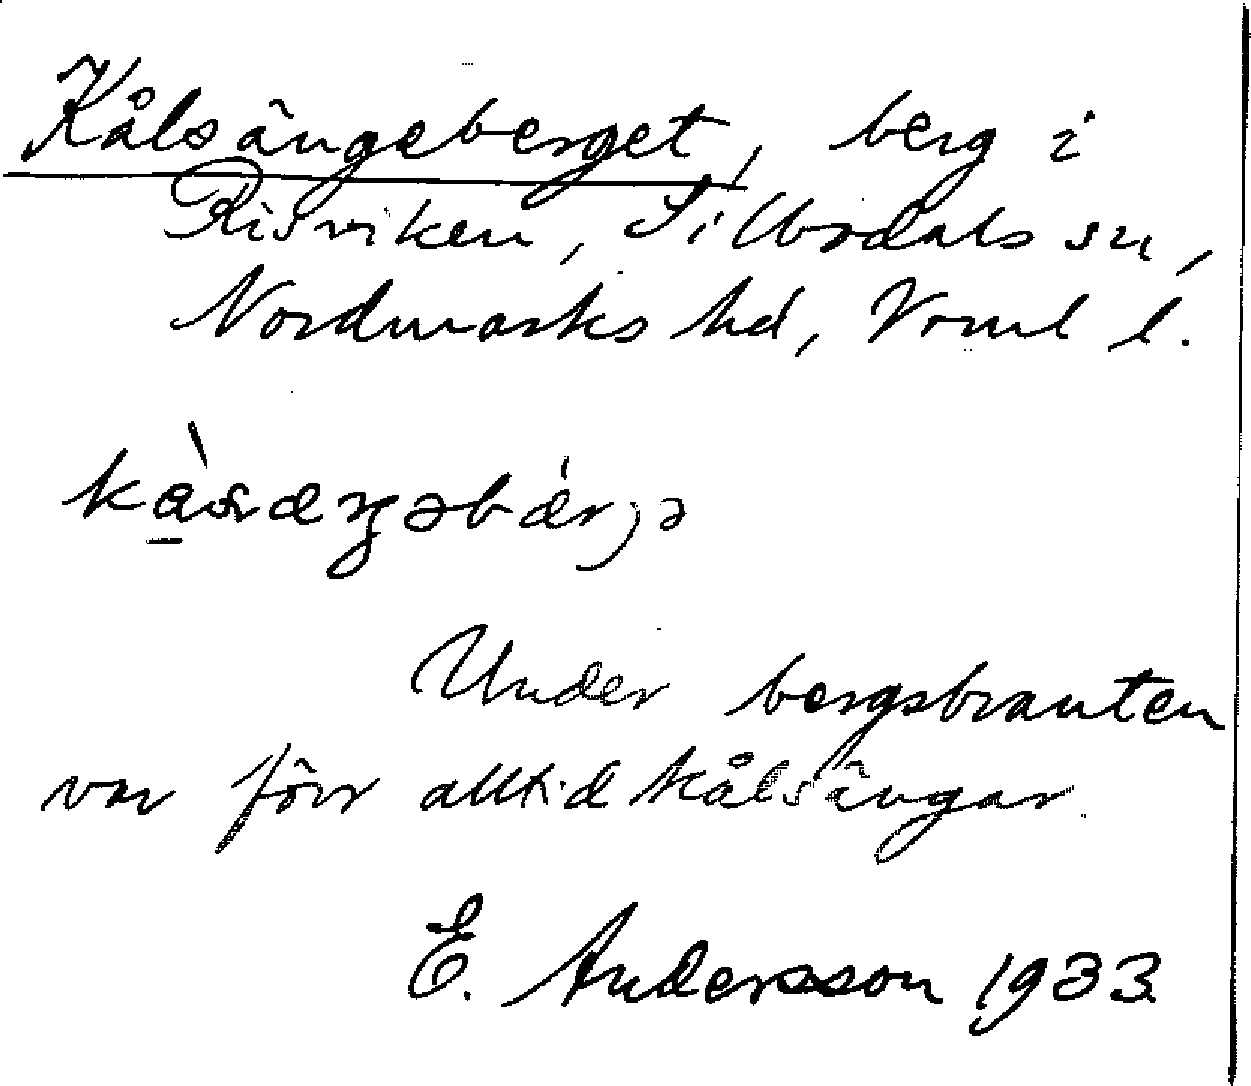 Kålsängeberget, berg i
Risviken, Sillbodals sn,
Nordmarks hd, Vrml l.
Under bergsbranten
var förr alltid kålsängar.
E. Andersson 1933